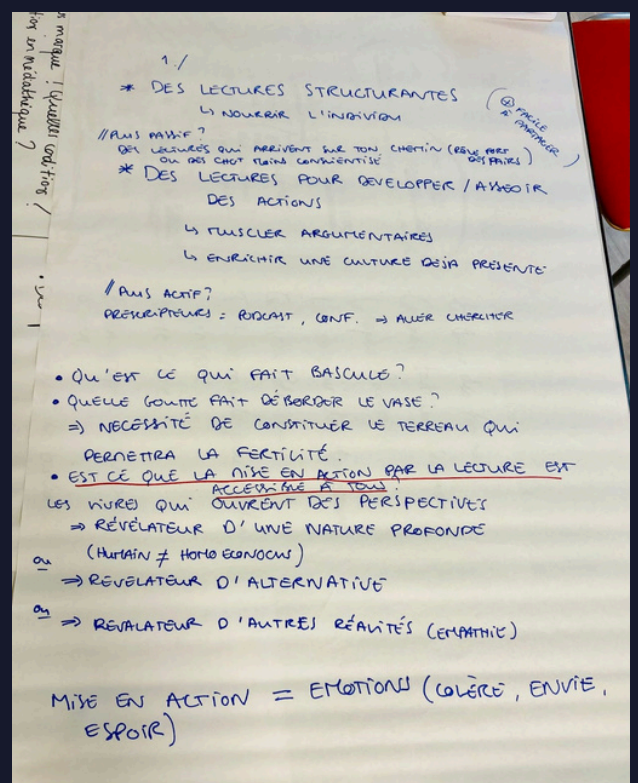 marque ! Quelles conditions !
en médiathèque ?
1./
* DES LECTURES STRUCTURANTES
↳ NOURRIR L'INDIVIDU
(+ FACILE
À PARTAGER)
// PLUS PASSIF ?
DES LECTURES QUI ARRIVENT SUR TON CHEMIN (RÔLE FORT
DES PAIRS)
OU DES CHOIX MOINS CONSCIENTISÉ
* DES LECTURES POUR DEVELOPPER / ASSEOIR
DES ACTIONS
↳ MUSCLER ARGUMENTAIRES
↳ ENRICHIR UNE CULTURE DEJA PRESENTE
// PLUS ACTIF ?
PRESCRIPTEURS = PODCAST, CONF. ⇒ ALLER CHERCHER
• QU'EST CE QUI FAIT BASCULE ?
• QUELLE GOUTTE FAIT DÉBORDER LE VASE ?
⇒ NECESSITÉ DE CONSTITUER LE TERREAU QUI
PERMETTRA LA FERTILITÉ.
• EST CE QUE LA MISE EN ACTION PAR LA LECTURE EST
ACCESSIBLE A TOUS ?
LES LIVRES QUI OUVRENT DES PERSPECTIVES
⇒ RÉVÉLATEUR D'UNE NATURE PROFONDE
(HUMAIN ≠ HOMO ECONOCUS)
ou
⇒ REVELATEUR D'ALTERNATIVE
ou
⇒ REVALATEUR D'AUTRES RÉALITÉS (EMPATHIE)
MISE EN ACTION = EMOTIONS (COLÈRE, ENVIE,
ESPOIR)